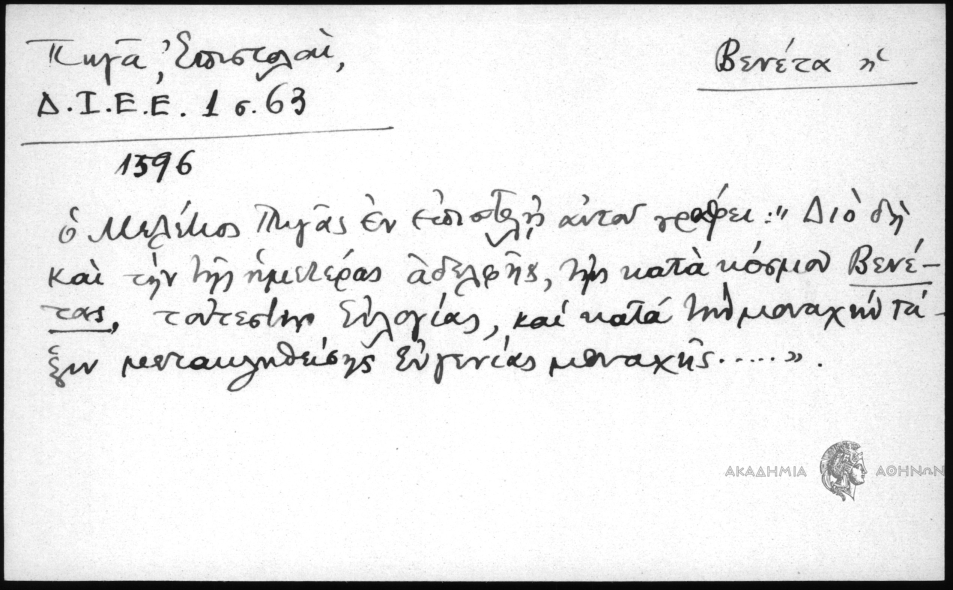 Πηγᾶ, Ἐπιστολαὶ,
Βενέτα ἡ
Δ.Ι.Ε.Ε. 1 σ. 63
1596
ὁ Μελέτιος Πηγᾶς ἐν ἐπιστολῇ αὐτοῦ γράφει: "Διὸ δὴ
καὶ τὴν τῆς ἡμετέρας ἀδελφῆς, τῆς κατὰ κόσμον Βενέ-
τας, τοὐτέστιν Εὐλογίας, καὶ κατά τὴν μοναχὴν τά-
ξιν μετακληθείσης Εὐγενίας μοναχῆς.....».
ΑΚΑΔΗΜΙΑ ΑΘΗΝΩΝ